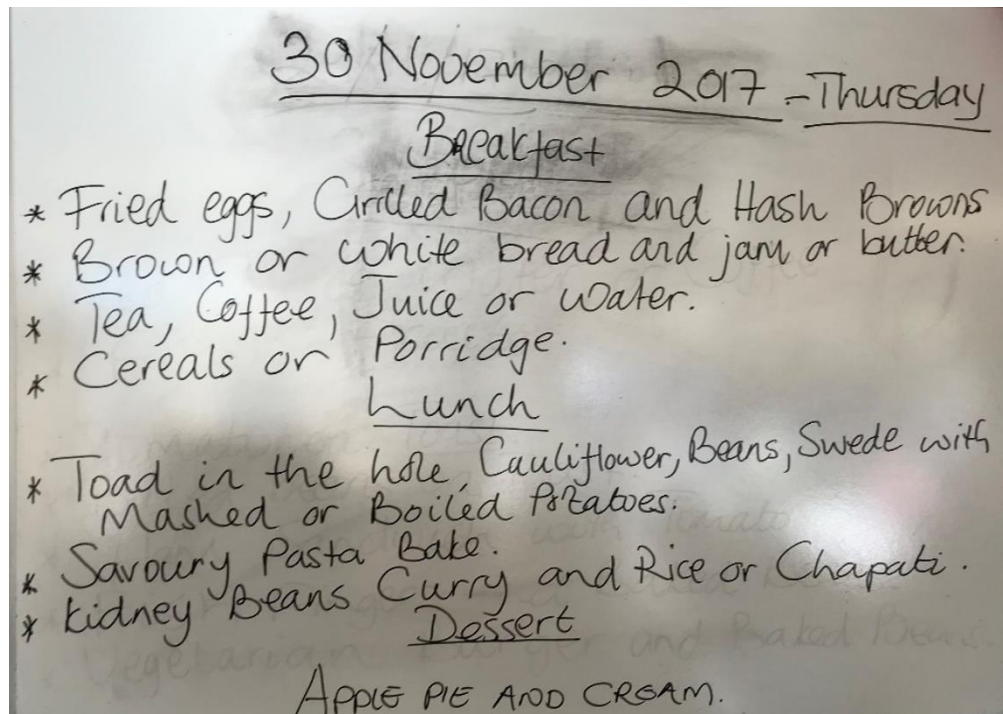 30 November 2017 - Thursday
Breakfast
* Fried eggs, Grilled Bacon and Hash Browns
* Brown or white bread and jam or butter.
* Tea, Coffee, Juice or water.
* Cereals or Porridge.
Lunch
* Toad in the hole, Cauliflower, Beans, Swede with
Mashed or Boiled Potatoes.
* Savoury Pasta Bake.
* Kidney Beans Curry and Rice or Chapati.
Dessert
Vegetarian Burger and Baked Beans
APPLE PIE AND CREAM.